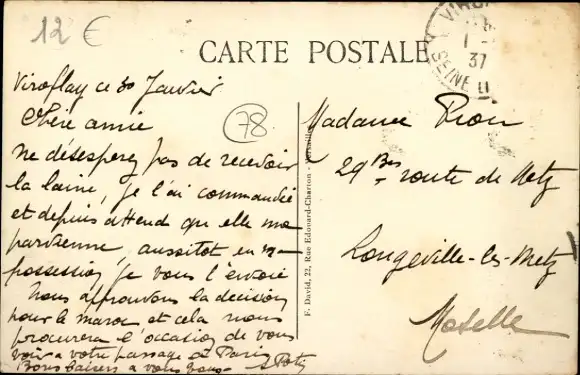 12 €
CARTE POSTALE
VIROF
1 -
37
SEINE
Viroflay ce 30 Janvier
Chère amie
78
ne désesperez pas de recevoir
la laine, je l'ai commandée
et depuis attend que elle me
parvienne, aussitot en ma
possession, je vous l'envoie
Nous approuvons la décision
pour le maroc et cela nous
procurera l'occasion de vous
voir a votre passage a Paris
Bons baisers a vous tous
F. David, 22, Rue Edouard-Charton - Versailles
Madame
29 Bis route de Metz
Longeville-les-Metz
Moselle